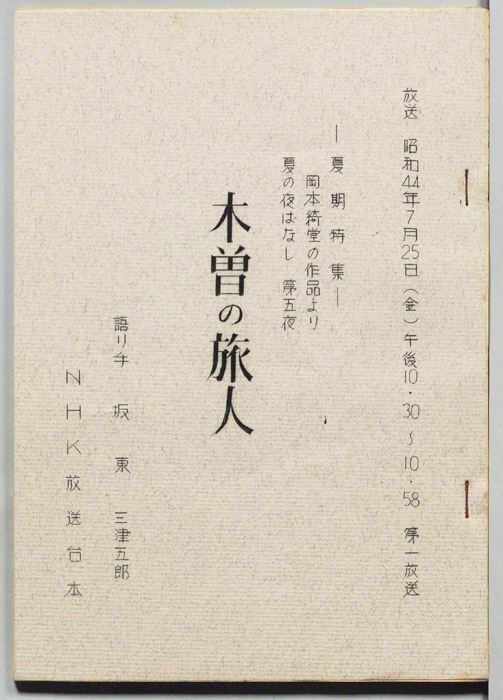 放送 昭和44年7月25日(金)午後10・30~10・58 第一放送
―夏期特集―
岡本綺堂の作品より
夏の夜はなし 第五夜
木曽の旅人
語り手 坂東 三津五郎
NHK放送台本